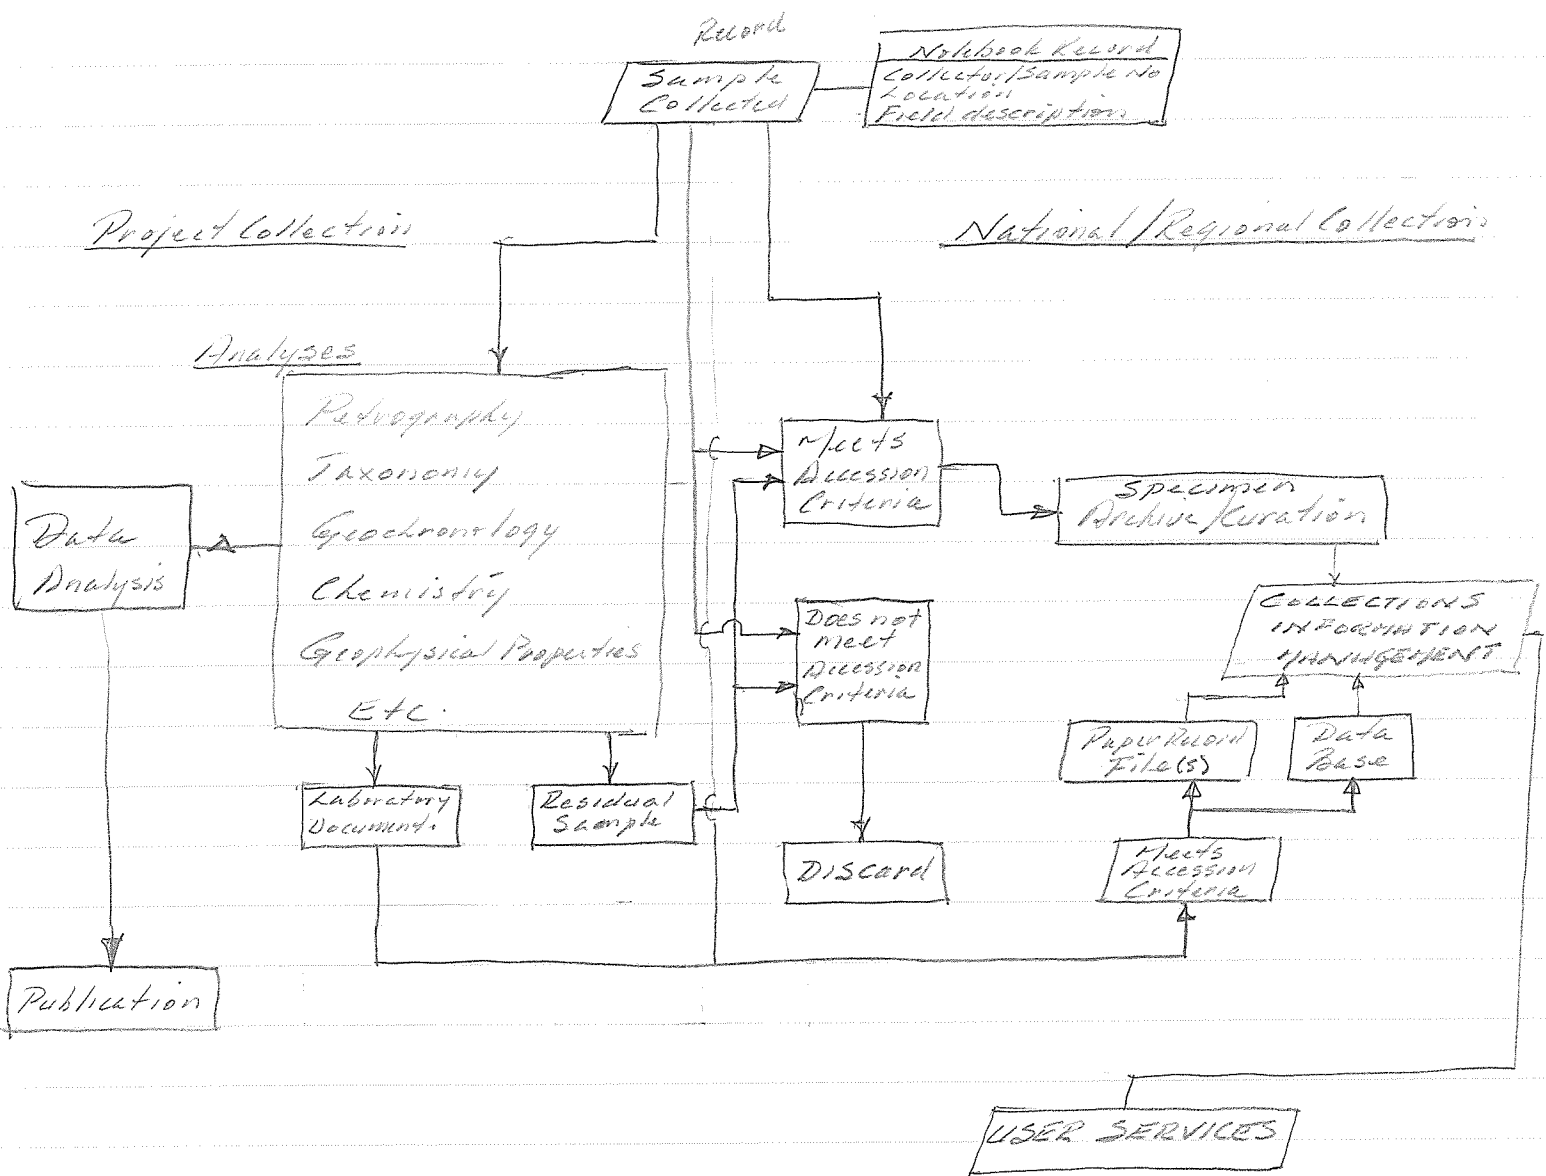 Record
Notebook Record
Collector/Sample No
Location
Field description
Sample
Collected
Project Collection
National/Regional Collection
Analyses
Petrography
Taxonomy
Geochronology
Chemistry
Geophysical Properties
Etc.
Data
Analysis
Meets
Accession
Criteria
Specimen
Archive/Curation
Does not
meet
Accession
Criteria
COLLECTIONS
INFORMATION
MANAGEMENT
Paper Record
File(s)
Data
Base
Laboratory
Document.
Residual
Sample
Discard
Meets
Accession
Criteria
Publication
USER SERVICES